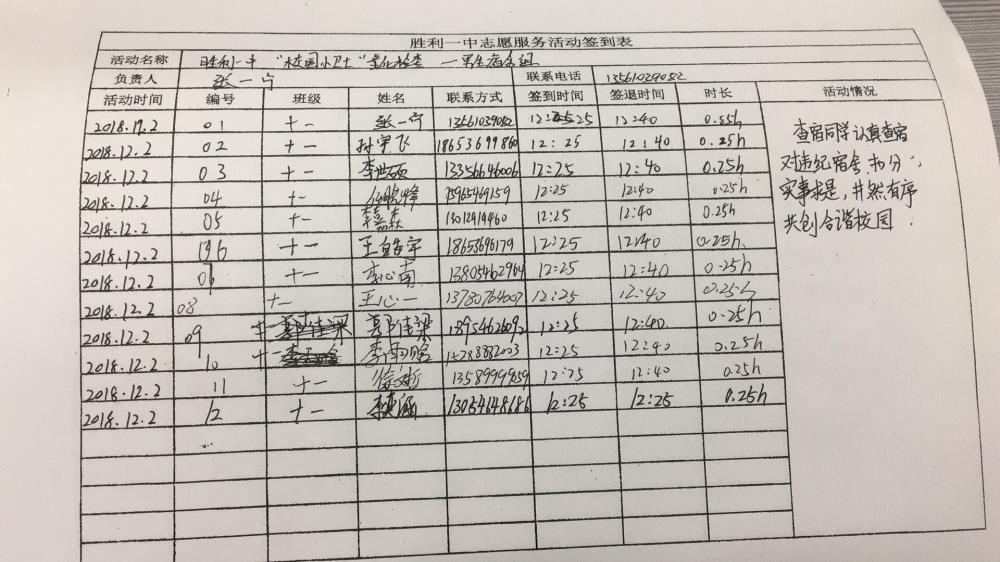 胜利一中志愿服务活动签到表
活动名称 胜利一中 "校园小卫士"量化检查 —男生宿舍组
负责人 张一宁 联系电话 13561029082
活动时间 编号 班级 姓名 联系方式 签到时间 签退时间 时长 活动情况
2018.12.2 01 十一 张一宁 12:25 12:40 0.25h
2018.12.2 02 十一 孙宇飞 18653699860 12:25 12:40 0.25h
2018.12.2 03 十一 李世硕 13356646006 12:25 12:40 0.25h
2018.12.2 04 十一 12:25 12:40 0.25h
2018.12.2 05 十一 李嘉森 12:25 12:40 0.25h
2018.12.2 06 十一 18653696179 12:25 12:40 0.25h
2018.12.2 07 十一 李心南 13805462964 12:25 12:40 0.25h
2018.12.2 08 十一 王心一 13780764007 12:25 12:40 0.25h
2018.12.2 09 十一 郭佳梁 12:25 12:40 0.25h
2018.12.2 10 十一 李雨晗 12:25 12:40 0.25h
2018.12.2 11 十一 12:25 12:40 0.25h
2018.12.2 12 十一 13054648686 12:25 12:25 0.25h
查宿同学认真查宿
对违纪宿舍扣分,
实事求是,井然有序
共创合谐校园.